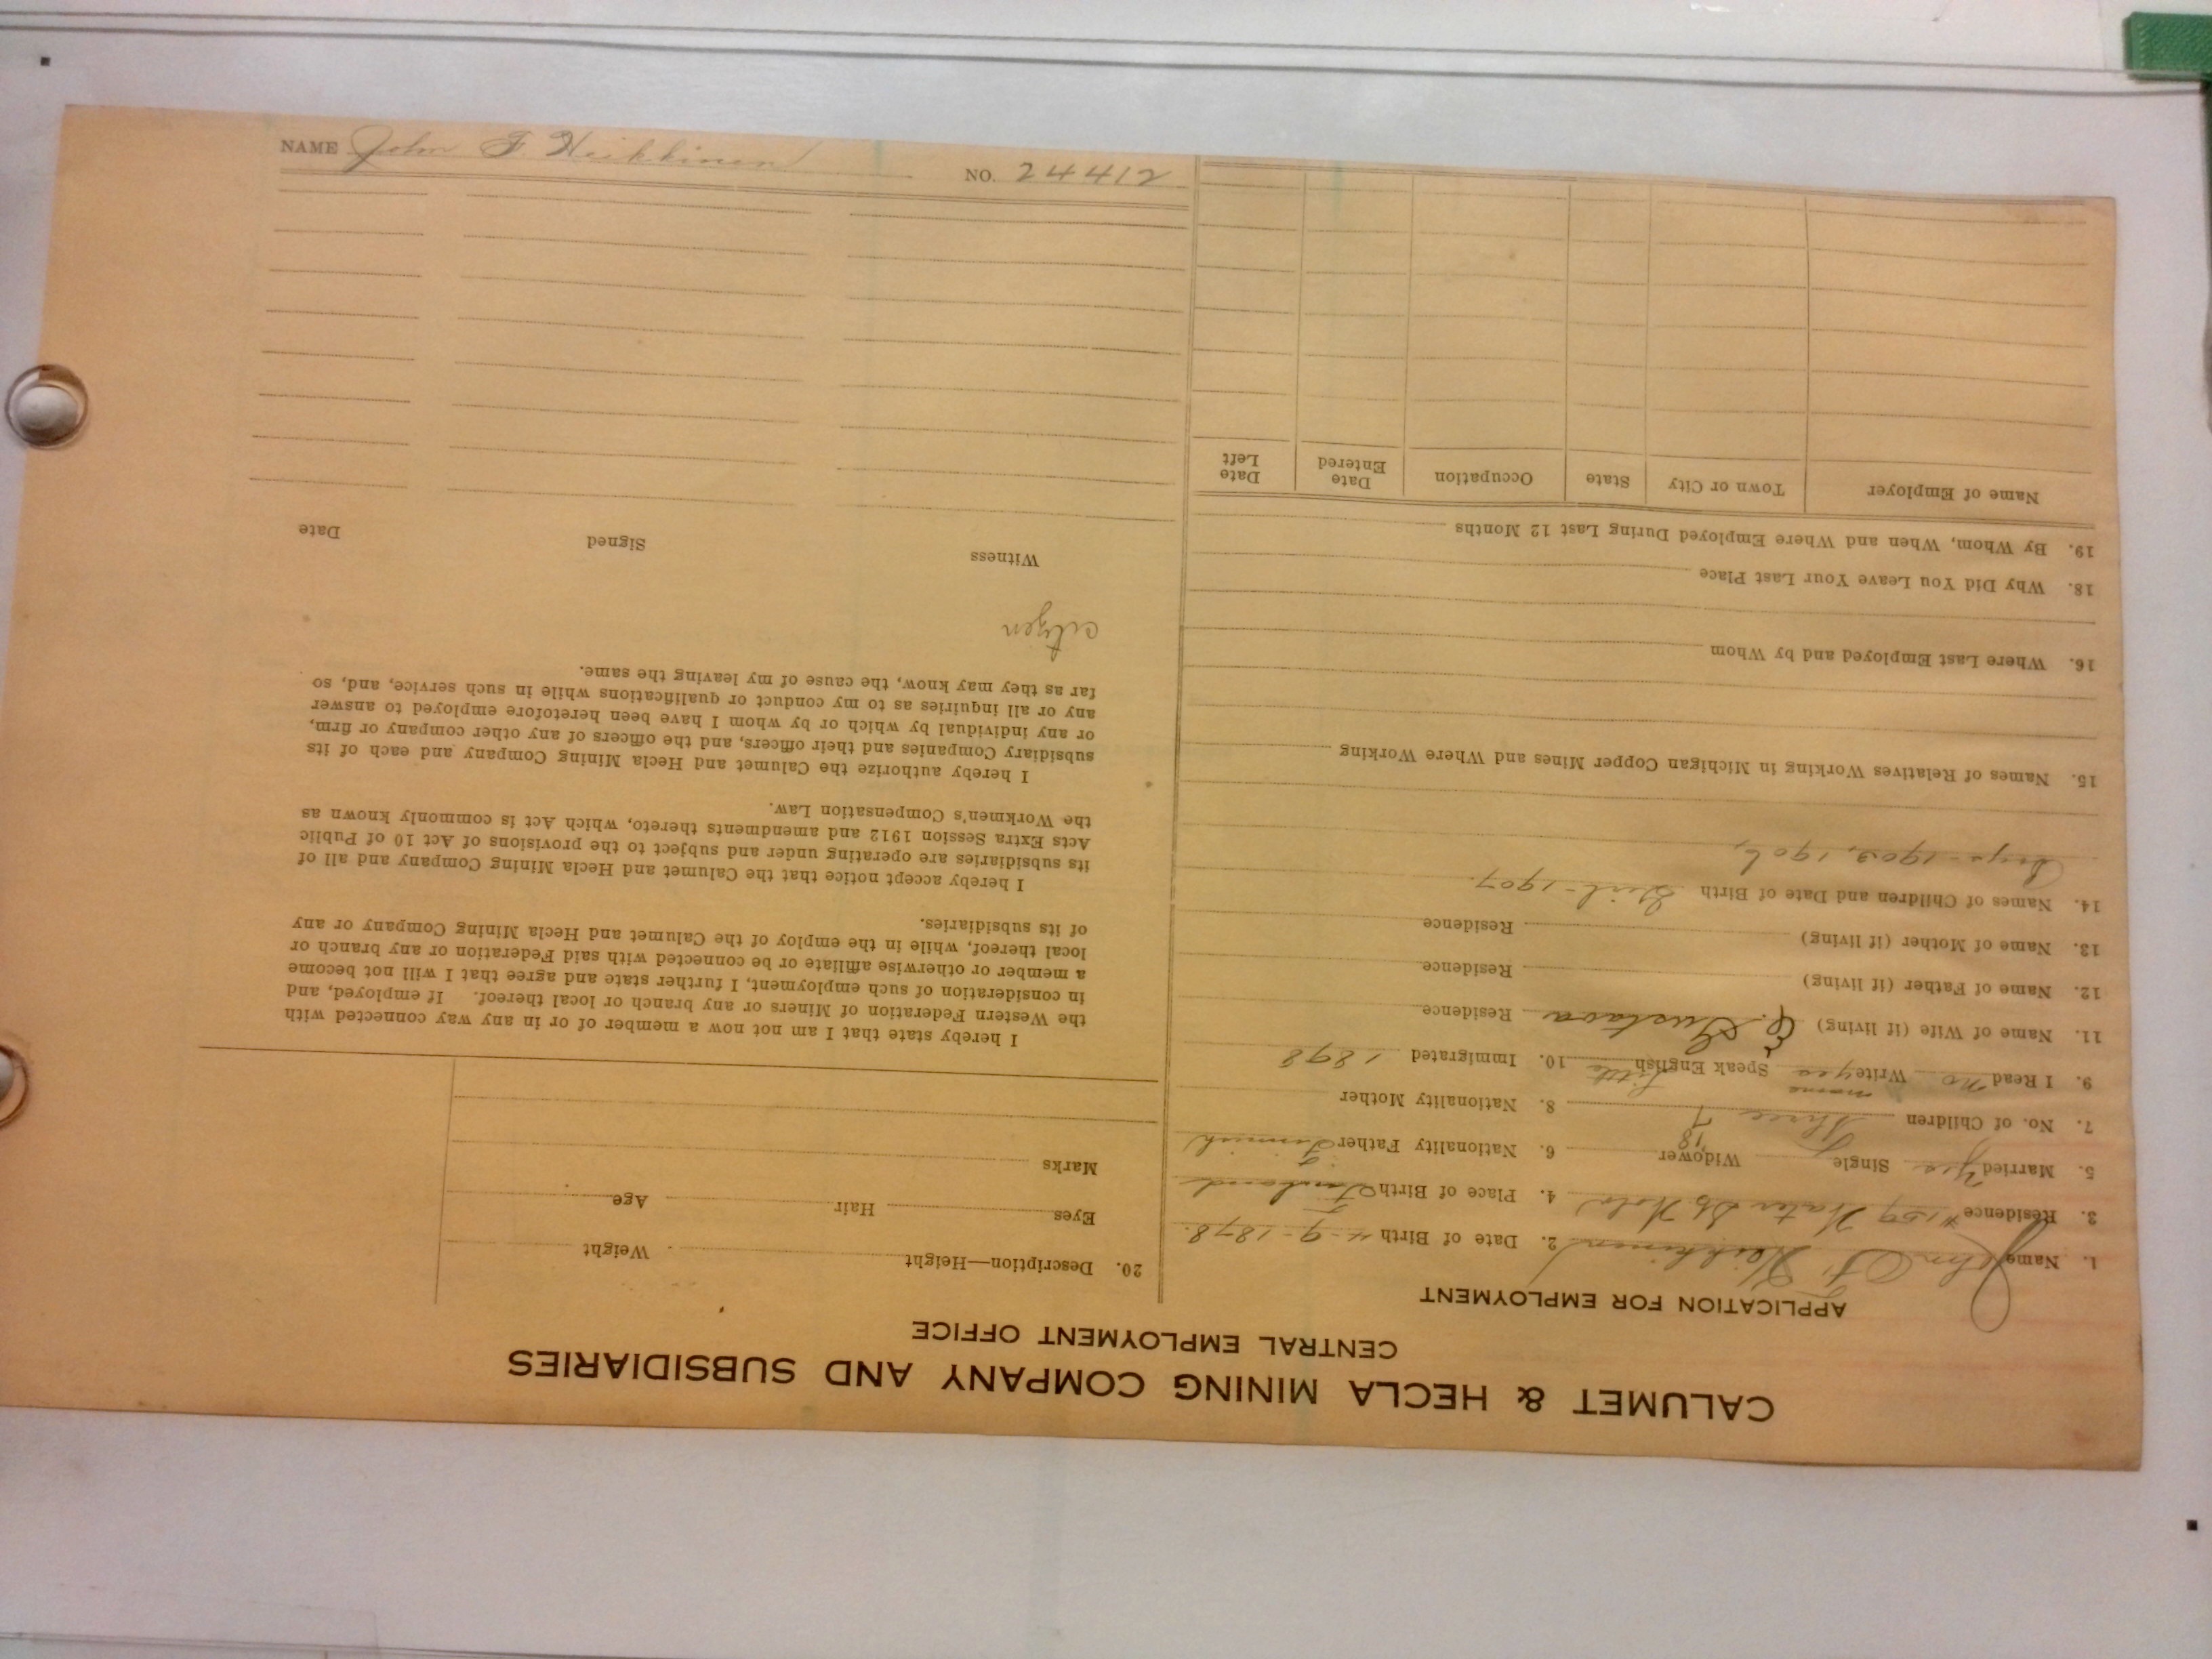 NAME John F. Heikkinen
NO. 24412
CALUMET & HECLA MINING COMPANY AND SUBSIDIARIES
CENTRAL EMPLOYMENT OFFICE
APPLICATION FOR EMPLOYMENT
1. Name John F. Heikkinen 2. Date of Birth 4-9-1878.
3. Residence #159 Water St 4. Place of Birth Finland
5. Married Yes Single Widower 6. Nationality Father Finnish
7. No. of Children Three 8. Nationality Mother
9. I Read no Write yes Speak English little 10. Immigrated 1898
11. Name of Wife (if living) Gustava Residence
12. Name of Father (if living) Residence
13. Name of Mother (if living) Residence
14. Names of Children and Date of Birth Girl-1907.
Boys-1903, 1906,
15. Names of Relatives Working in Michigan Copper Mines and Where Working
16. Where Last Employed and by Whom
18. Why Did You Leave Your Last Place
19. By Whom, When and Where Employed During Last 12 Months
Name of Employer Town or City State Occupation Date Entered Date Left
20. Description—Height Weight
Eyes Hair Age
Marks
I hereby state that I am not now a member of or in any way connected with
the Western Federation of Miners or any branch or local thereof. If employed, and
in consideration of such employment, I further state and agree that I will not become
a member or otherwise affiliate or be connected with said Federation or any branch or
local thereof, while in the employ of the Calumet and Hecla Mining Company or any
of its subsidiaries.
I hereby accept notice that the Calumet and Hecla Mining Company and all of
its subsidiaries are operating under and subject to the provisions of Act 10 of Public
Acts Extra Session 1912 and amendments thereto, which Act is commonly known as
the Workmen's Compensation Law.
I hereby authorize the Calumet and Hecla Mining Company and each of its
subsidiary Companies and their officers, and the officers of any other company or firm,
or any individual by which or by whom I have been heretofore employed to answer
any or all inquiries as to my conduct or qualifications while in such service, and, so
far as they may know, the cause of my leaving the same.
citizen
Witness Signed Date